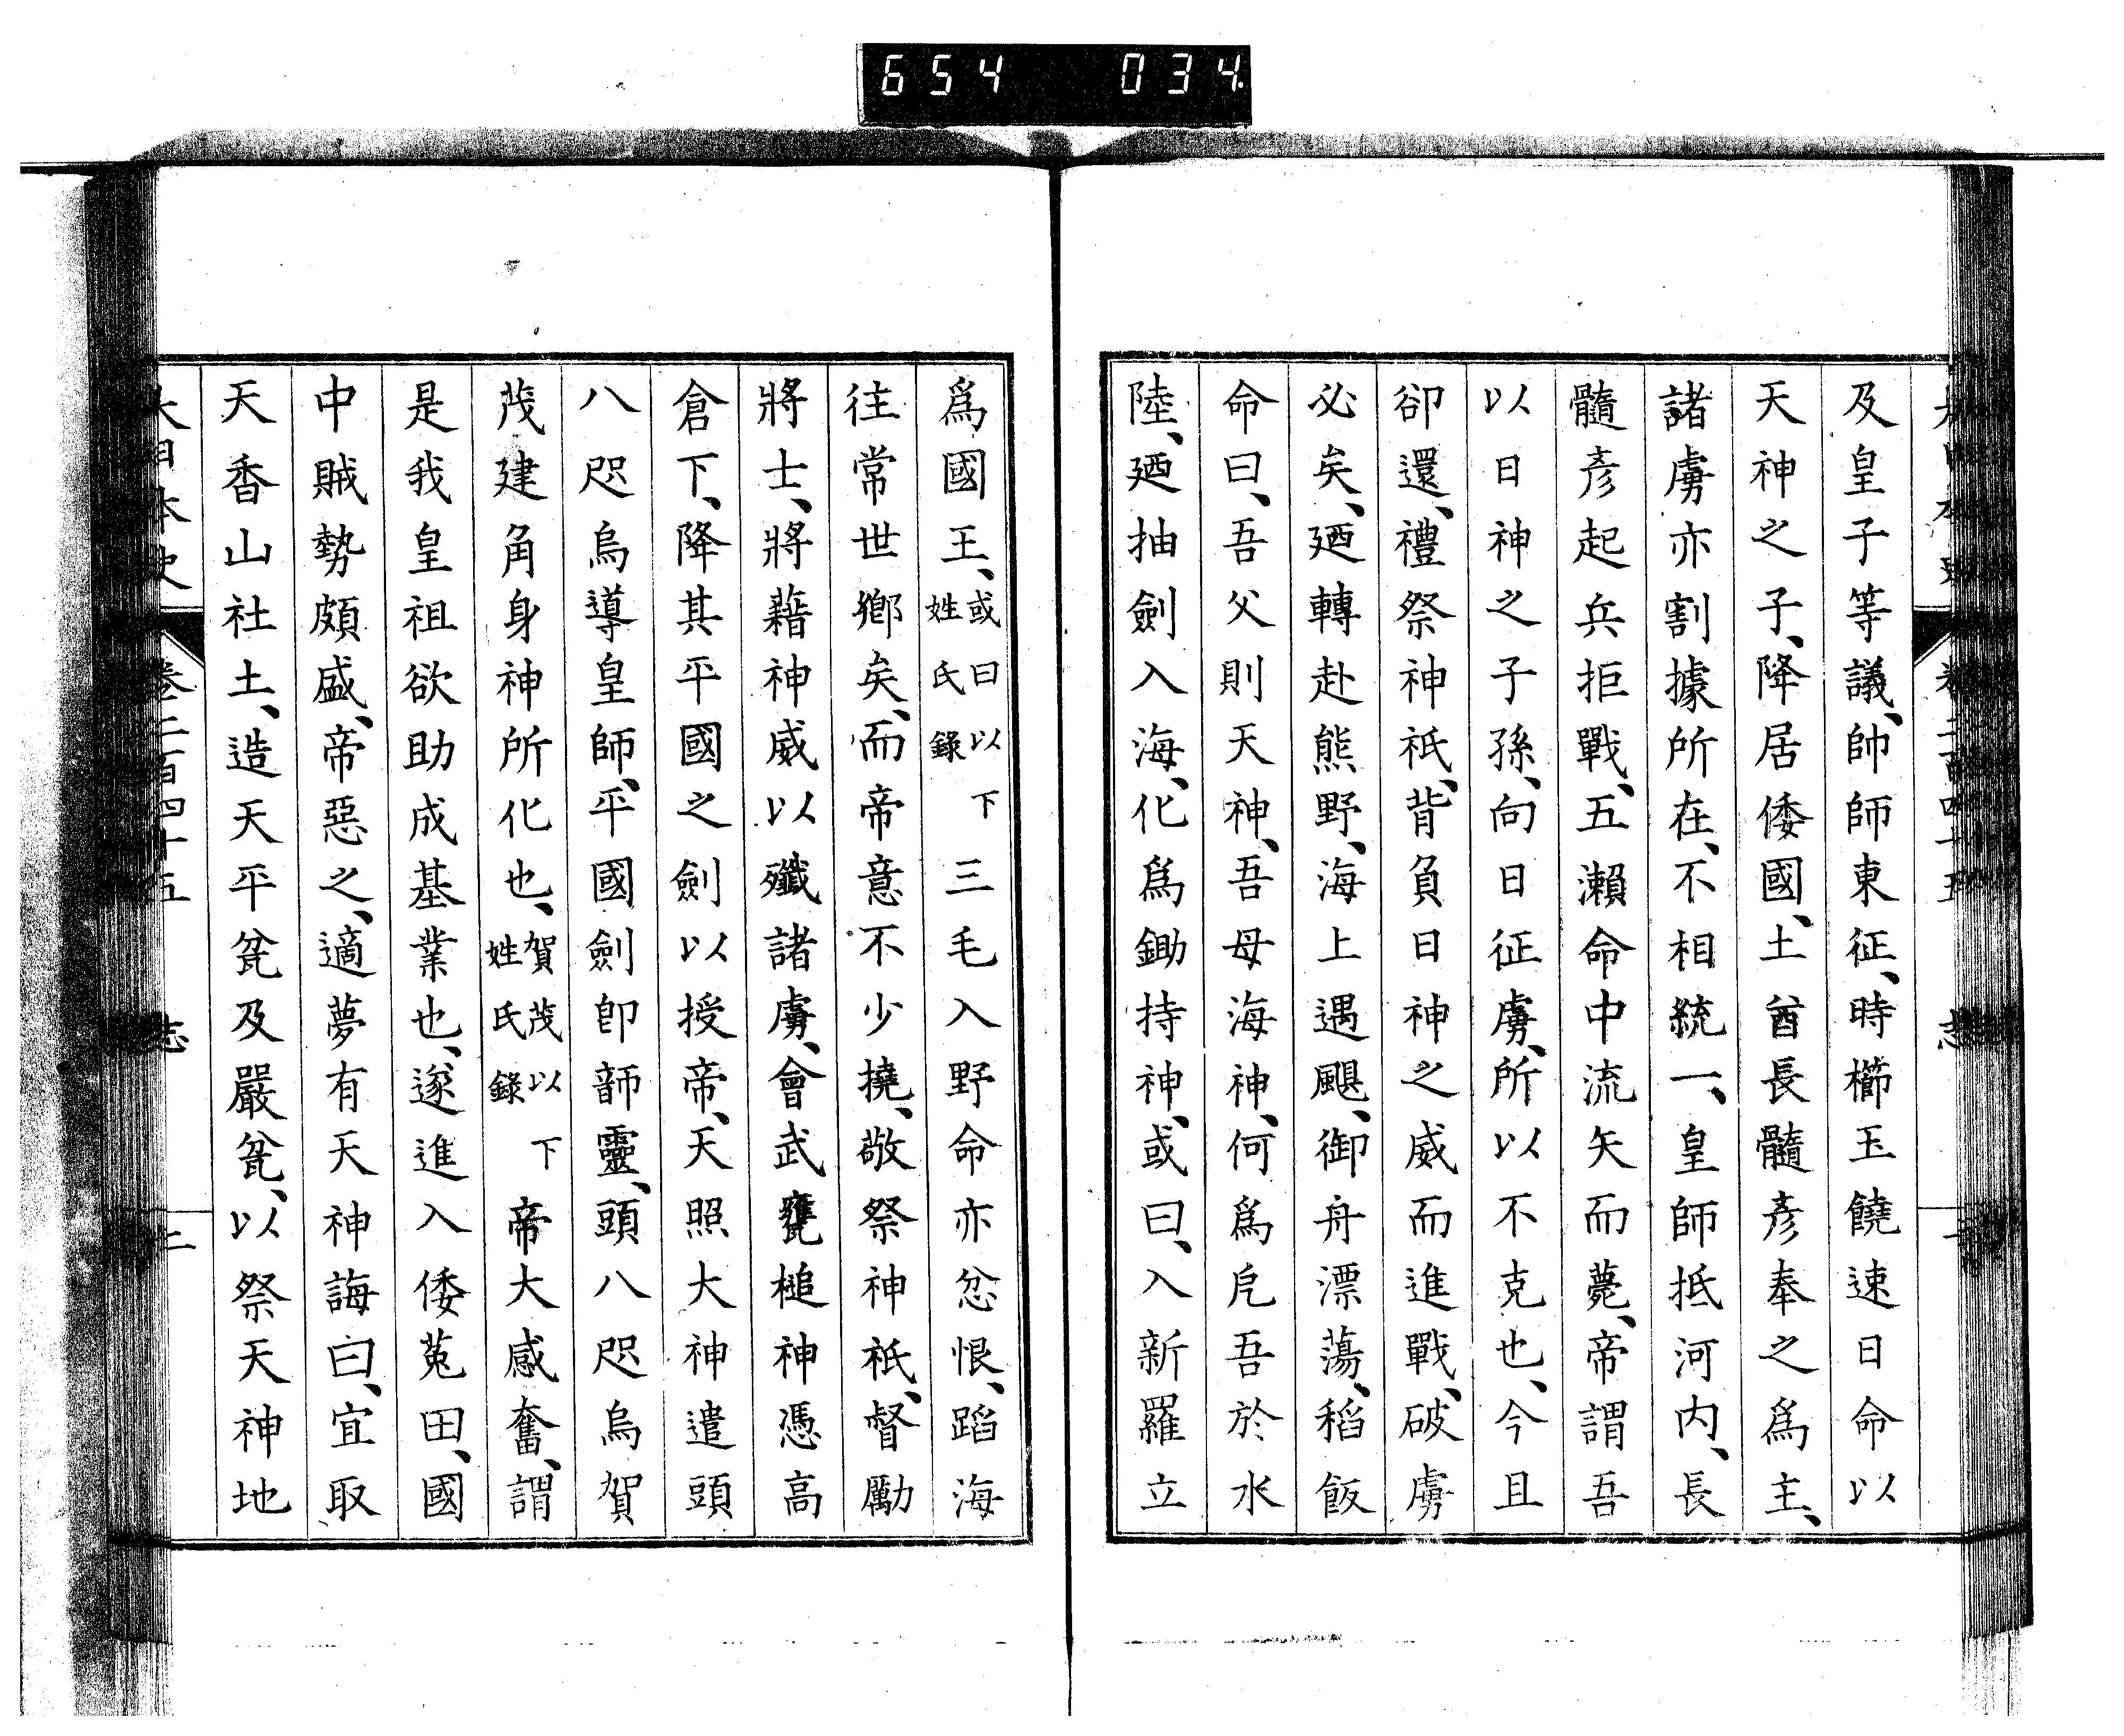 654 034
及皇子等議、帥師東征、時櫛玉饒速日命以
天神之子、降居倭國、土酋長髓彥奉之爲主、
諸虜亦割據所在、不相統一、皇師抵河内、長
髓彥起兵拒戰、五瀨命中流矢而薨、帝謂吾
以日神之子孫、向日征虜、所以不克也、今且
卻還、禮祭神祇、背負日神之威而進戰、破虜
必矣、廼轉赴熊野、海上遇颶、御舟漂蕩、稻飯
命曰、吾父則天神、吾母海神、何爲戹吾於水
陸、廼抽劍入海、化爲鋤持神、或曰、入新羅立
爲國王、或曰以下姓氏錄三毛入野命亦忿恨、蹈海
往常世鄉矣、而帝意不少撓、敬祭神祇、督勵
將士、將藉神威以殲諸虜、會武甕槌神憑高
倉下、降其平國之劍以授帝、天照大神遣頭
八咫烏導皇師、平國劍卽䪷靈、頭八咫烏賀
茂建角身神所化也、賀茂以下姓氏錄帝大感奮、謂
是我皇祖欲助成基業也、遂進入倭菟田、國
中賊勢頗盛、帝惡之、適夢有天神誨曰、宜取
天香山社土、造天平瓮及嚴瓮、以祭天神地
大日本史 卷二百四十五 志 二